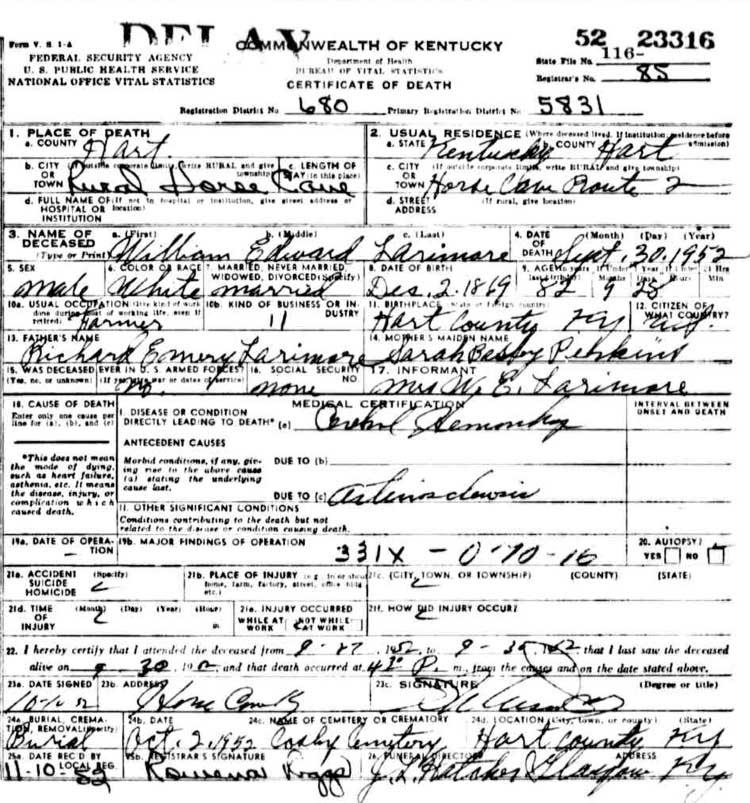 DELAY
Form V. S. 1-A
FEDERAL SECURITY AGENCY
U. S. PUBLIC HEALTH SERVICE
NATIONAL OFFICE VITAL STATISTICS
COMMONWEALTH OF KENTUCKY
Department of Health
BUREAU OF VITAL STATISTICS
CERTIFICATE OF DEATH
52 23316
116-
State File No.
Registrar's No. 85
Registration District No. 680 Primary Registration District No. 5831
1. PLACE OF DEATH
a. COUNTY Hart
b. CITY (If outside corporate limits, write RURAL and give township)
OR
TOWN Rural Horse Cave
c. LENGTH OF STAY (in this place)
d. FULL NAME OF (If not in hospital or institution, give street address or location)
HOSPITAL OR
INSTITUTION
2. USUAL RESIDENCE (Where deceased lived. If institution: residence before admission)
a. STATE Kentucky b. COUNTY Hart
c. CITY (If outside corporate limits, write RURAL and give township)
OR
TOWN Horse Cave Route 2
d. STREET (If rural, give location)
ADDRESS
3. NAME OF DECEASED (Type or Print) a. (First) b. (Middle) c. (Last)
William Edward Larimore
4. DATE OF DEATH (Month) (Day) (Year)
Sept. 30. 1952
5. SEX Male
6. COLOR OR RACE White
7. MARRIED, NEVER MARRIED, WIDOWED, DIVORCED (Specify) married
8. DATE OF BIRTH Dec. 2. 1869
9. AGE (In years last birthday) If Under 1 Year If Under 24 Hrs
82 9 28
10a. USUAL OCCUPATION (Give kind of work done during most of working life, even if retired) Farmer
10b. KIND OF BUSINESS OR INDUSTRY 11
11. BIRTHPLACE (State or foreign country) Hart County Ky
12. CITIZEN OF WHAT COUNTRY?
13. FATHER'S NAME
Richard Emery Larimore
14. MOTHER'S MAIDEN NAME
Sarah Perkins
15. WAS DECEASED EVER IN U. S. ARMED FORCES?
(Yes, no, or unknown) (If yes, give war or dates of service) no.
16. SOCIAL SECURITY NO. none
17. INFORMANT
Mrs W. E. Larimore
18. CAUSE OF DEATH
Enter only one cause per line for (a), (b), and (c)
*This does not mean the mode of dying, such as heart failure, asthenia, etc. It means the disease, injury, or complication which caused death.
MEDICAL CERTIFICATION
INTERVAL BETWEEN ONSET AND DEATH
I. DISEASE OR CONDITION
DIRECTLY LEADING TO DEATH* (a) Cerebral Hemorrhage
ANTECEDENT CAUSES
Morbid conditions, if any, giving rise to the above cause (a) stating the underlying cause last.
DUE TO (b)
DUE TO (c) arteriosclerosis
II. OTHER SIGNIFICANT CONDITIONS
Conditions contributing to the death but not related to the disease or condition causing death.
19a. DATE OF OPERATION
19b. MAJOR FINDINGS OF OPERATION
331X - 0-90-16
20. AUTOPSY?
YES NO
21a. ACCIDENT (Specify)
SUICIDE
HOMICIDE
21b. PLACE OF INJURY (e.g., in or about home, farm, factory, street, office bldg., etc.)
21c. (CITY, TOWN, OR TOWNSHIP) (COUNTY) (STATE)
21d. TIME OF INJURY (Month) (Day) (Year) (Hour) m
21e. INJURY OCCURRED
WHILE AT WORK NOT WHILE AT WORK
21f. HOW DID INJURY OCCUR?
22. I hereby certify that I attended the deceased from 9-27 1952 to 9-30 1952 that I last saw the deceased
alive on 9-30 19 and that death occurred at P. m., from the causes and on the date stated above.
23a. DATE SIGNED
23b. ADDRESS Horse Cave Ky
23c. SIGNATURE (Degree or title)
24a. BURIAL, CREMATION, REMOVAL (Specify) Burial
24b. DATE Oct. 2. 1952
24c. NAME OF CEMETERY OR CREMATORY Cosby Cemetery
24d. LOCATION (City, town, or county) (State)
Hart County Ky
25a. DATE REC'D BY LOCAL REG. 11-10-52
25b. REGISTRAR'S SIGNATURE
Rowena
26. FUNERAL DIRECTOR ADDRESS
J. L. Hatcher Glasgow Ky